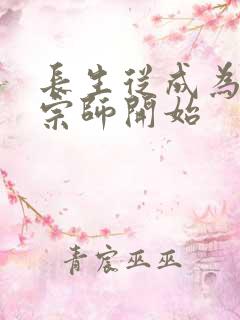 長生從成為
宗師開始
青宸巫巫